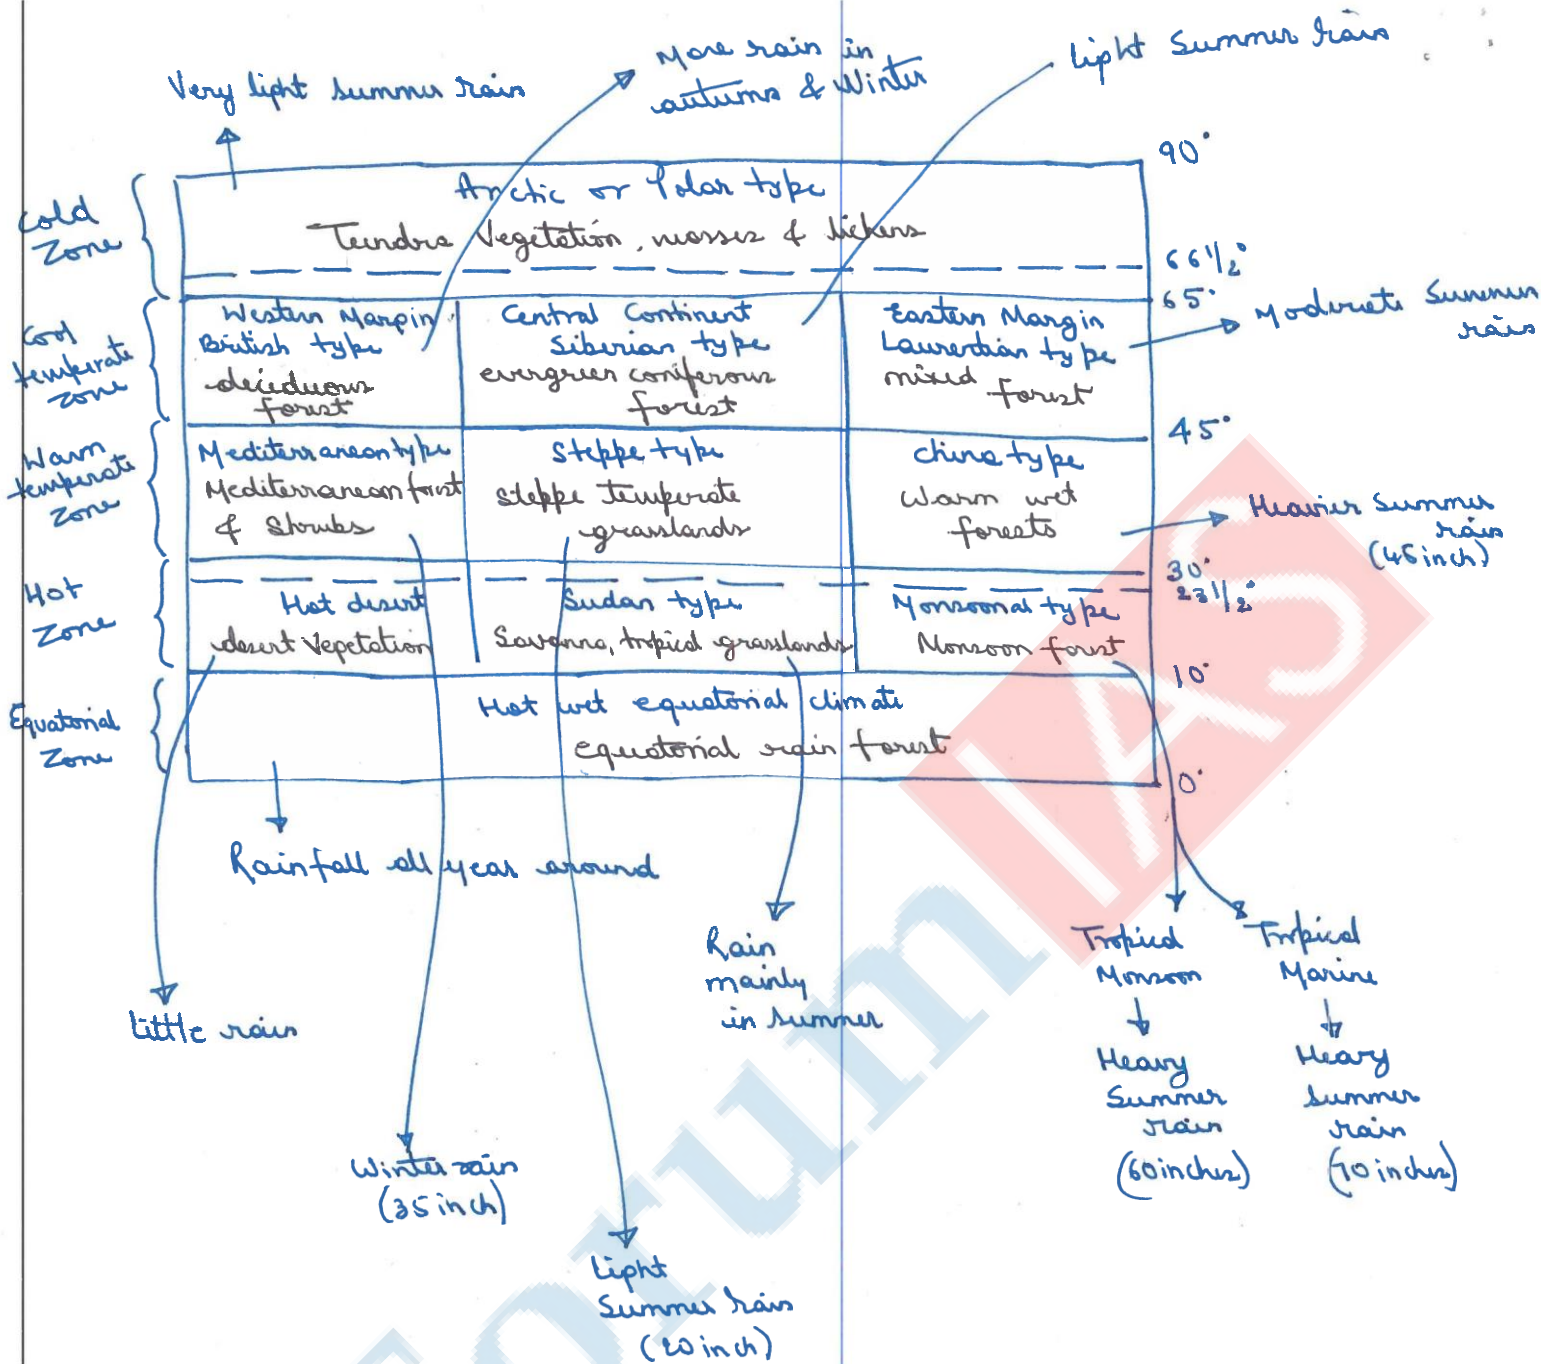 More rain in
autumn & Winter
Light Summer rain
Very light summer rain
90°
Arctic or Polar type
Tundra Vegetation, mosses & lickens
Cold
Zone
66 1/2°
65°
Western Margin
British type
deciduous
forest
Central Continent
Siberian type
evergreen coniferous
forest
Eastern Margin
Laurentian type
mixed
forest
Moderate Summer
rain
Cool
temperate
zone
45°
Warm
temperate
zone
Mediterranean type
Mediterranean forest
& Shrubs
Steppe type
Steppe temperate
grasslands
China type
Warm wet
forests
Heavier Summer
rain
(45 inch)
30°
23 1/2°
Hot
Zone
Hot desert
desert Vegetation
Sudan type
Savanna, tropical grasslands
Monsoonal type
Monsoon forest
10°
Equatorial
Zone
Hot wet equatorial climate
equatorial rain forest
0°
Rainfall all year around
Little rain
Rain
mainly
in summer
Tropical
Monsoon
Heavy
Summer
rain
(60 inches)
Tropical
Marine
Heavy
Summer
rain
(70 inches)
Winter rain
(35 inch)
Light
Summer rain
(20 inch)
Forum IAS